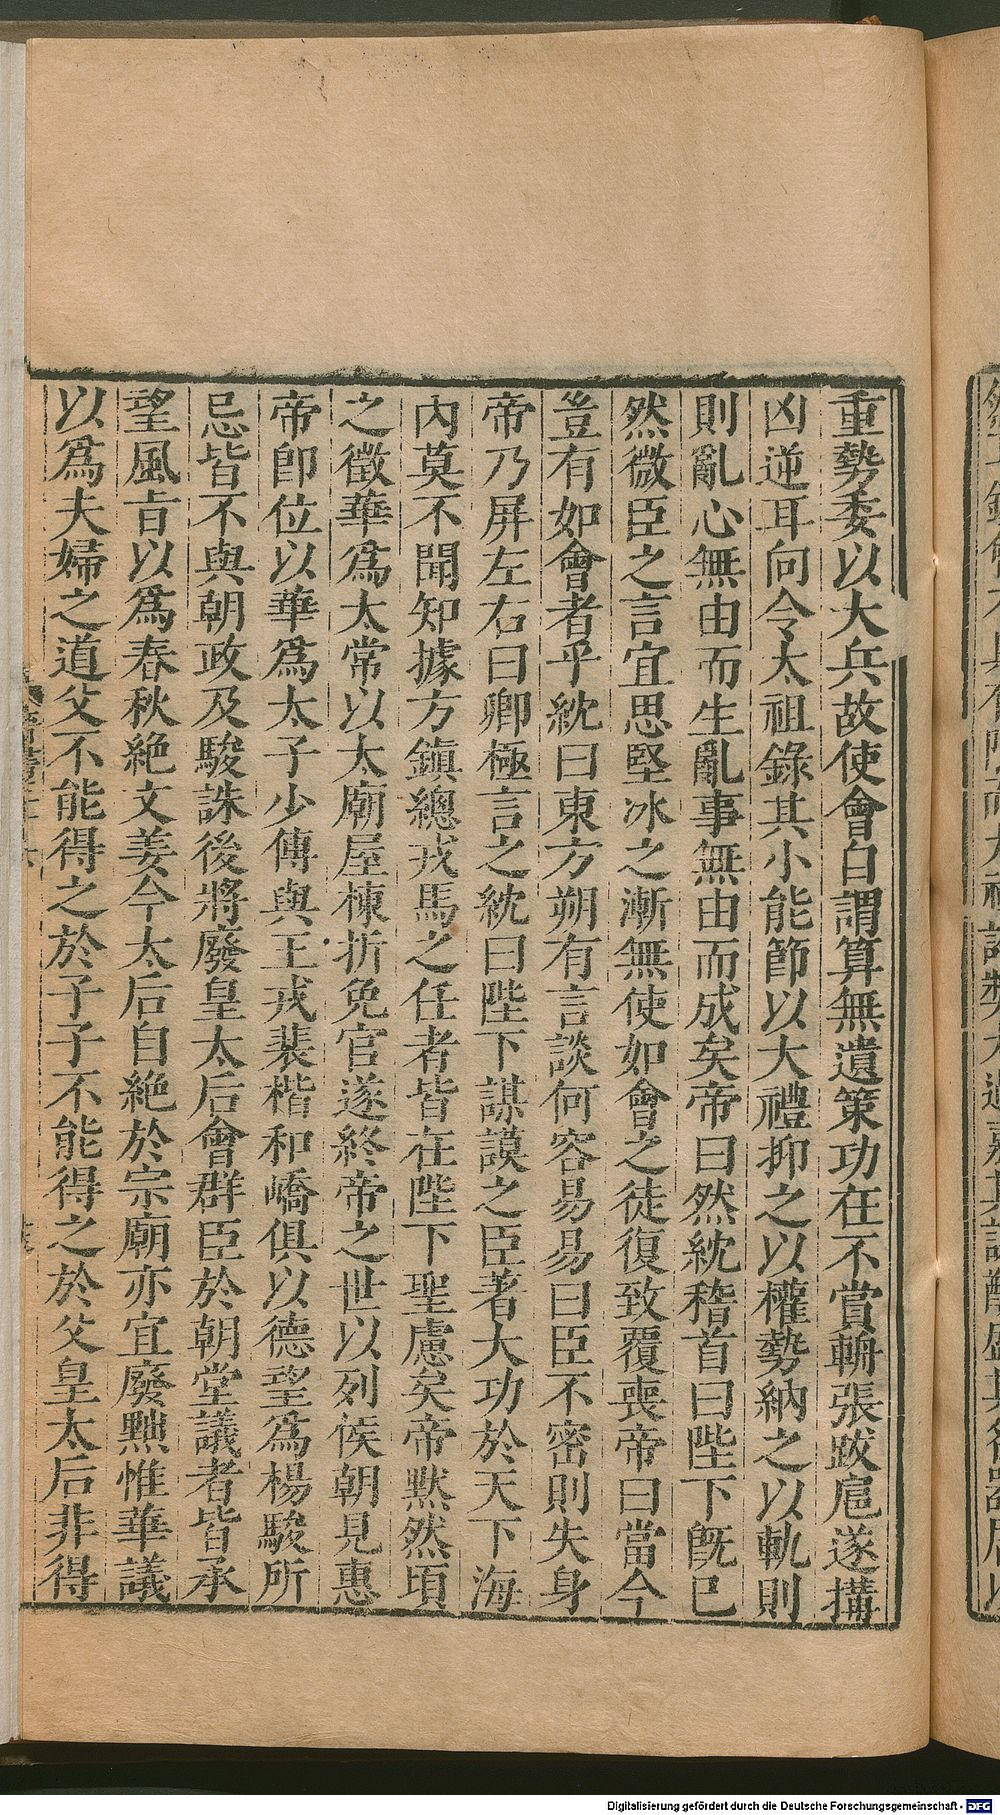 重勢委以大兵故使會自謂算無遺策功在不賞輈張跋扈遂搆
凶逆耳向令太祖錄其小能節以大禮抑之以權勢納之以軌則
則亂心無由而生亂事無由而成矣帝曰然紞稽首曰陛下旣已
然微臣之言宜思堅冰之漸無使如會之徒復致覆喪帝曰當今
豈有如會者乎紞曰東方朔有言談何容易易曰臣不密則失身
帝乃屏左右曰卿極言之紞曰陛下謀謨之臣著大功於天下海
內莫不聞知據方鎮總戎馬之任者皆在陛下聖慮矣帝黙然頃
之徵華爲太常以太廟屋棟折免官遂終帝之世以列侯朝見惠
帝卽位以華爲太子少傅與王戎裴楷和嶠俱以德望爲楊駿所
忌皆不與朝政及駿誅後將廢皇太后會群臣於朝堂議者皆承
望風旨以爲春秋絶文姜今太后自絶於宗廟亦宜廢黜惟華議
以爲夫婦之道父不能得之於子子不能得之於父皇太后非得
Digitalisierung gefördert durch die Deutsche Forschungsgemeinschaft - DFG